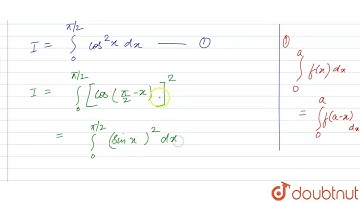 I = ∫₀^π/2 cos²x dx —— ①
I = ∫₀^π/2 [cos(π/2 - x)]²
= ∫₀^π/2 (sin x)² dx
①
∫₀^a f(x) dx
= ∫₀^a f(a-x) dx
doubtnut